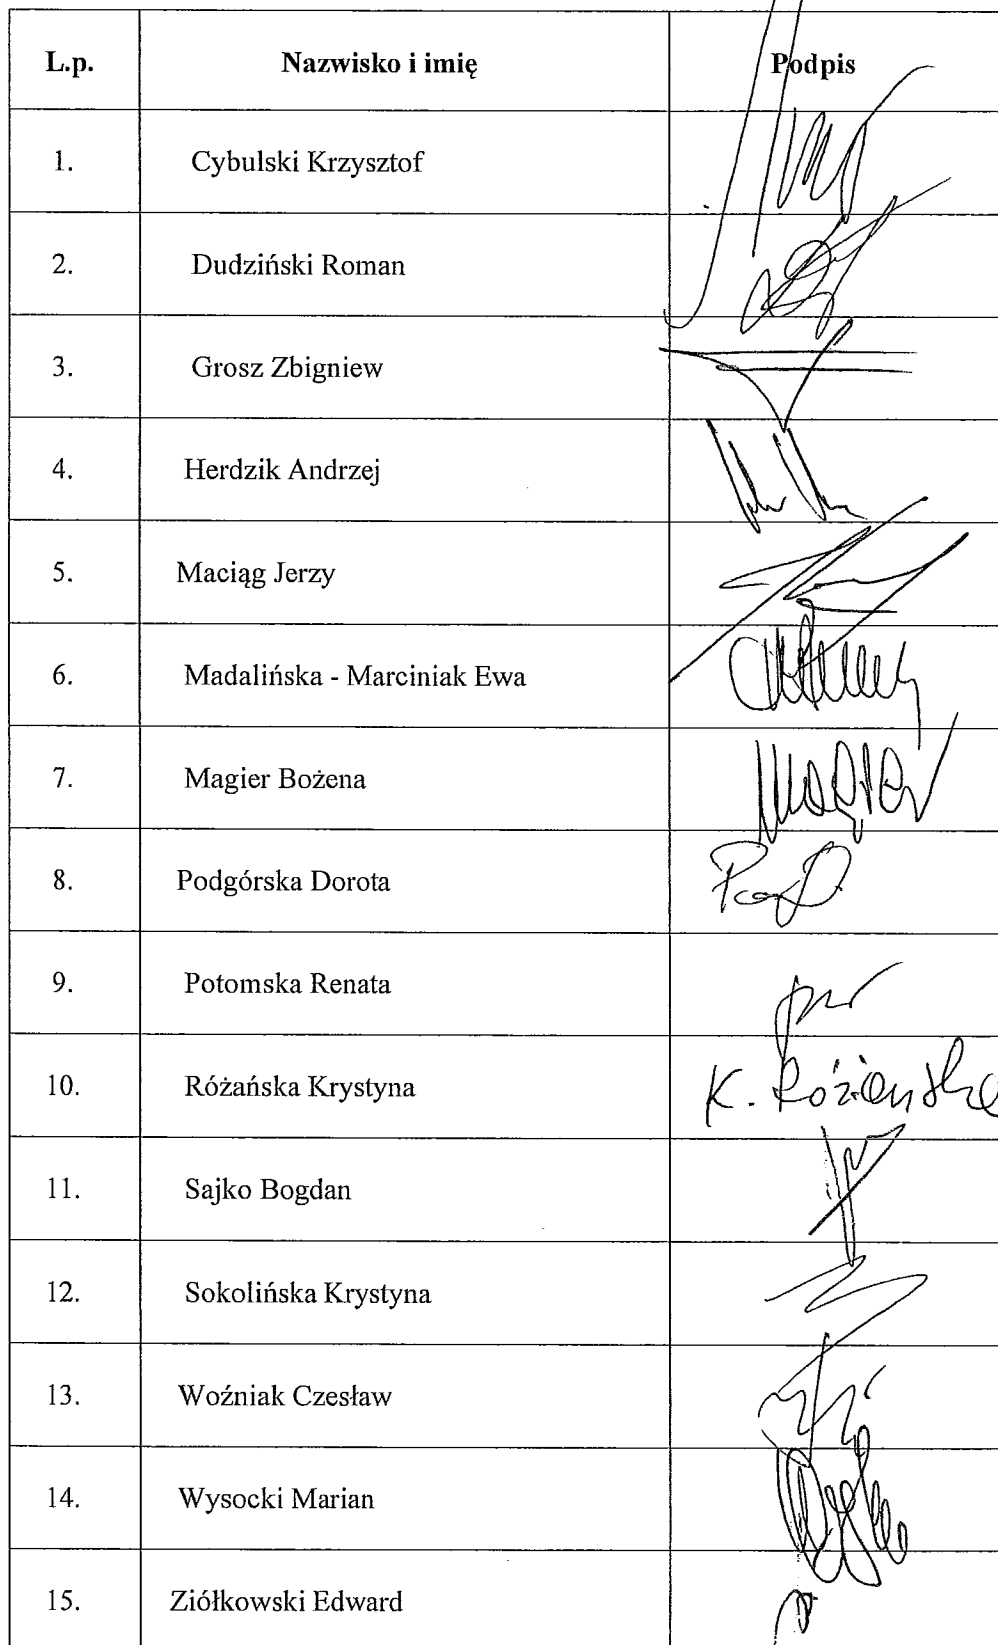 L.p. Nazwisko i imię Podpis
1. Cybulski Krzysztof
2. Dudziński Roman
3. Grosz Zbigniew
4. Herdzik Andrzej
5. Maciąg Jerzy
6. Madalińska - Marciniak Ewa
7. Magier Bożena
8. Podgórska Dorota
9. Potomska Renata
10. Różańska Krystyna K. Różańska
11. Sajko Bogdan
12. Sokolińska Krystyna
13. Woźniak Czesław
14. Wysocki Marian
15. Ziółkowski Edward